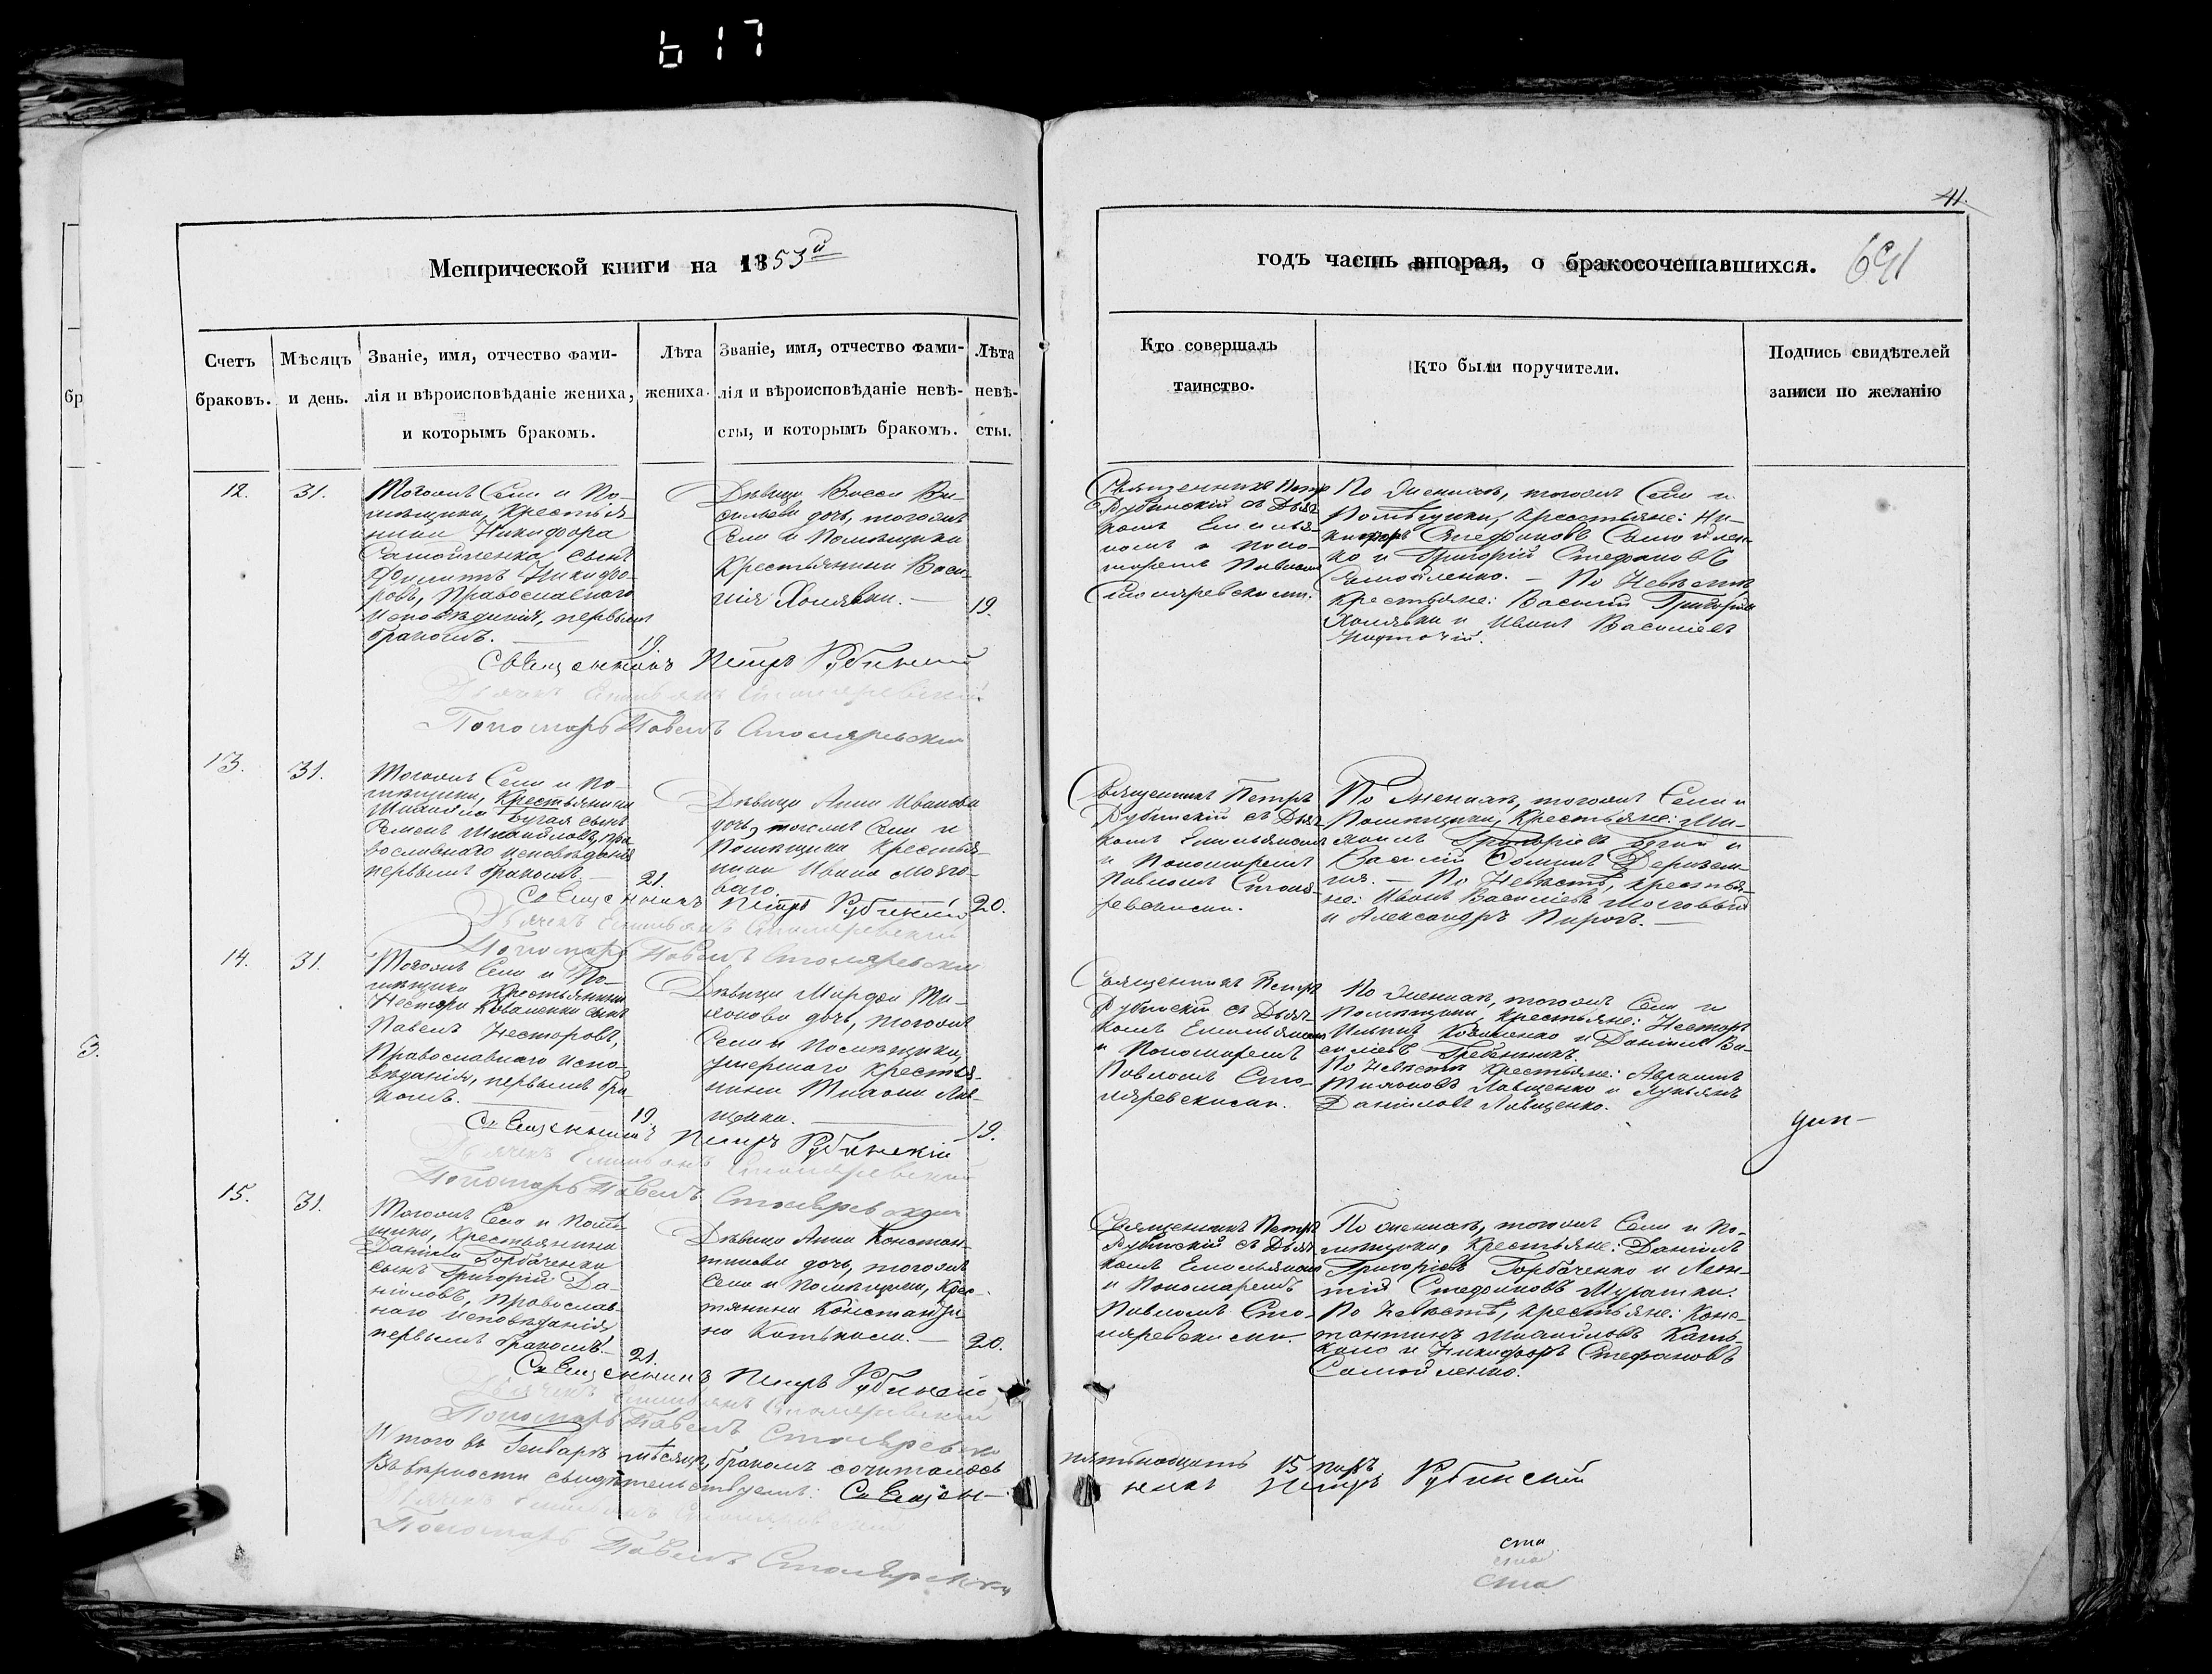 617
41.
641
Метрической книги на 1853й
годъ часть вторая, о бракосочетавшихся.
Счетъ
браковъ.
Мѣсяцъ
и день.
Званіе, имя, отчество фами-
лія и вѣроисповѣданіе жениха,
и которымъ бракомъ.
Лѣта
жениха.
Званіе, имя, отчество фами-
лія и вѣроисповѣданіе невѣ-
сты, и которымъ бракомъ.
Лѣта
невѣ-
сты.
Кто совершалъ
таинство.
Кто были поручители.
Подпись свидѣтелей
записи по желанію
12.
31.
Тогожъ Села и По-
мѣщика, Крестья-
нина Никифора
Самойленка сынъ
Филиппъ Никифо-
ровъ, Православнаго
Исповѣданія, первымъ
бракомъ.
19.
Дѣвица Васса Ва-
сильева дочь, тогожъ
Села и Помѣщика
Крестьянина Васи-
лія Холявки.
19.
Священникъ Петръ
Рубинскій съ Дьяч-
комъ Емилья-
номъ и поно-
маремъ Павломъ
Столяревскими.
По Женихѣ, тогожъ Села и
Помѣщика, Крестьяне: Ни-
кифоръ Стефановъ Самойлен-
ко и Григорій Стефановъ
Самойленко. — По Невѣстѣ
Крестьяне: Василій Григорьевъ
Холявка и Иванъ Васильевъ
Священникъ Петръ Рубинскій
Дьячекъ Емильянъ Столяревскій
Пономарь Павелъ Столяревскій
13.
31.
Тогожъ Села и По-
мѣщика, Крестьянина
Михаила Бугая сынъ
Семенъ Михайловъ, Пра-
вославнаго исповѣданія
первымъ бракомъ.
21.
Дѣвица Анна Иванова
дочь, тогожъ Села и
Помѣщика Крестья-
нина Ивана
20.
Священникъ Петръ
Рубинскій съ Дьяч-
комъ Емильяномъ
и Пономаремъ
Павломъ Столя-
ревскими.
По Женихѣ, тогожъ Села и
Помѣщика, Крестьяне: Ми-
хаилъ Григорьевъ Бугай и
Василій
По Невѣстѣ, Крестья-
не: Иванъ Васильевъ
и Александръ Пирогъ.
Священникъ Петръ Рубинскій
Дьячекъ Емильянъ Столяревскій
Пономарь Павелъ Столяревскій
14.
31.
Тогожъ Села и По-
мѣщика Крестьянина
Нестора Коваленка сынъ
Павелъ Несторовъ,
Православнаго испо-
вѣданія, первымъ бра-
комъ.
19.
Дѣвица Марфа Ти-
хонова дочь, тогожъ
Села и Помѣщика,
умершаго Крестья-
нина Тихона Лав-
щенка.
19.
Священникъ Петръ
Рубинскій съ Дьяч-
комъ Емильяномъ
и Пономаремъ
Павломъ Сто-
ляревскими.
По Женихѣ, тогожъ Села и
Помѣщика, Крестьяне: Несторъ
Коваленко и Даніилъ Ва-
сильевъ Гребенникъ.
По Невѣстѣ Крестьяне: Авраамъ
Тихоновъ Лавщенко и Лукьянъ
Даніиловъ Лавщенко.
Священникъ Петръ Рубинскій
Дьячекъ Емильянъ Столяревскій
Пономарь Павелъ Столяревскій
15.
31.
Тогожъ Села и Помѣ-
щика, Крестьянина
Даніила Горбаченка
сынъ Григорій Да-
ніиловъ, Православ-
наго исповѣданія
первымъ бракомъ.
21.
Дѣвица Анна Констан-
тинова дочь, тогожъ
Села и Помѣщика, Крес-
тянина Константи-
на
20.
Священникъ Петръ
Рубинскій съ Дьяч-
комъ Емильяномъ
и Пономаремъ
Павломъ Сто-
ляревскими.
По Женихѣ, тогожъ Села и По-
мѣщика, Крестьяне: Даніилъ
Григорьевъ Горбаченко и Леон-
тій Стефановъ Мурашка.
По Невѣстѣ, Крестьяне: Конс-
тантинъ Михайловъ
и Никифоръ Стефановъ
Самойленко.
Священникъ Петръ Рубинскій
Дьячекъ Емильянъ Столяревскій
Пономарь Павелъ Столяревскій
Итого въ Генварѣ мѣсяцѣ, бракомъ сочиталось пятьнадцать 15 паръ
Въ вѣрности свидѣтельствуемъ: Священ- никъ Петръ Рубинскій
Дьячекъ Емильянъ Столяревскій
Пономарь Павелъ Столяревскій